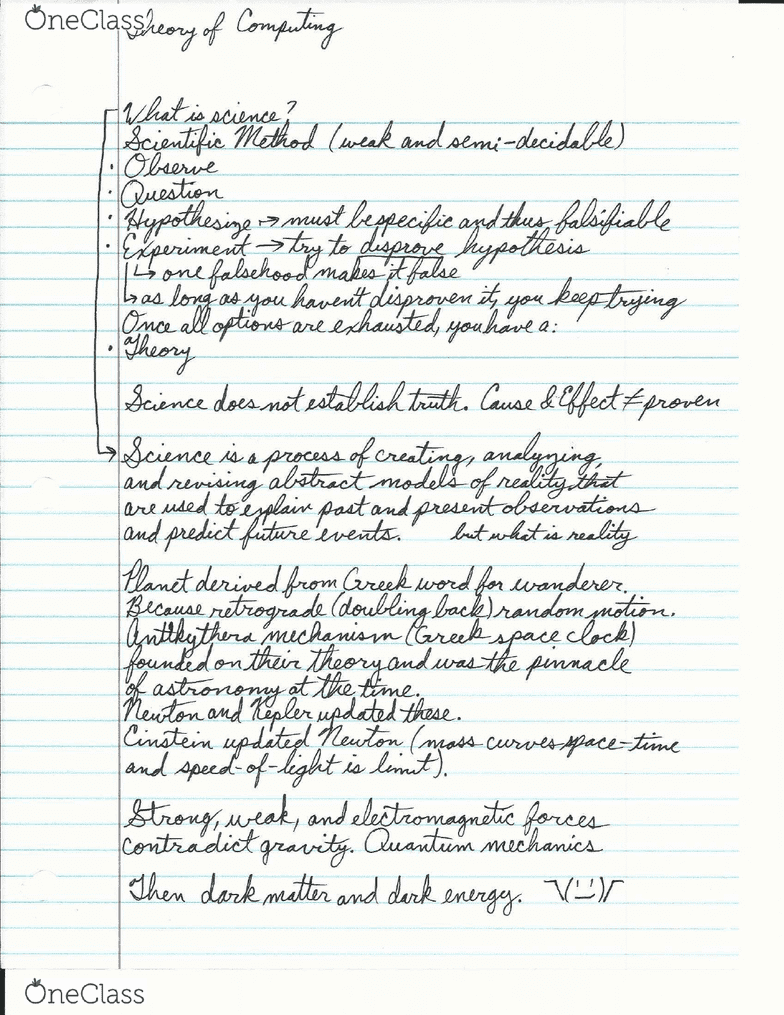 OneClass
Theory of Computing
What is science?
Scientific Method (weak and semi-decidable)
· Observe
· Question
· Hypothesize → must be specific and thus falsifiable
· Experiment → try to disprove hypothesis
↳ one falsehood makes it false
↳ as long as you haven't disproven it, you keep trying
Once all options are exhausted, you have a:
· Theory
Science does not establish truth. Cause & Effect ≠ proven
Science is a process of creating, analyzing,
and revising abstract models of reality that
are used to explain past and present observations
and predict future events. but what is reality
Planet derived from Greek word for wanderer.
Because retrograde (doubling back) random motion.
Antikythera mechanism (Greek space clock)
founded on their theory and was the pinnacle
of astronomy at the time.
Newton and Kepler updated these.
Einstein updated Newton (mass curves space-time
and speed-of-light is limit).
Strong, weak, and electromagnetic forces
contradict gravity. Quantum mechanics
Then dark matter and dark energy. ¯\(¨)/¯
OneClass